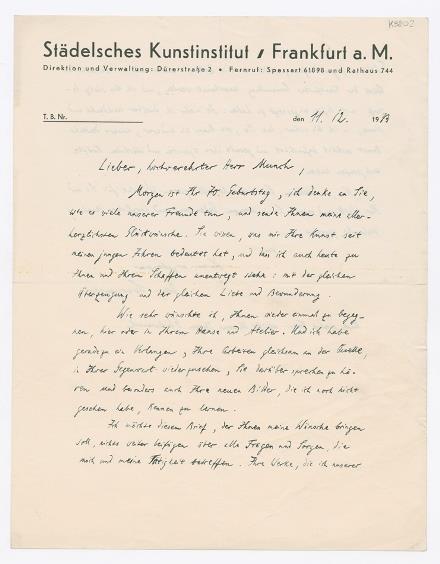 K3202
Städelsches Kunstinstitut / Frankfurt a. M.
Direktion und Verwaltung: Dürerstraße 2 • Fernruf: Spessart 61898 und Rathaus 744
T. B. Nr.
den 11. 12. 19
Lieber, hochverehrter Herr Munch,
Morgen ist Ihr Geburtstag, ich denke an Sie,
wie es viele unserer Freunde tun, und sende Ihnen meine aller-
herzlichsten Glückwünsche. Sie wissen, was mir Ihre Kunst seit
meinen jungen Jahren bedeutet hat, und daß ich auch heute zu
Ihnen und Ihrem Schaffen unentwegt stehe: mit der gleichen
Überzeugung und der gleichen Liebe und Bewunderung.
Wie sehr wünschte ich, Ihnen wieder einmal zu begeg-
nen, hier oder in Ihrem Hause und Atelier. Und ich habe
geradezu ein Verlangen, Ihre Arbeiten gleichsam an der Quelle,
in Ihrer Gegenwart wiederzusehen, Sie darüber sprechen zu hö-
ren und besonders auch Ihre neuen Bilder, die ich noch nicht
gesehen habe, kennen zu lernen.
Ich möchte diesem Brief, der Ihnen meine Wünsche bringen
soll, nichts weiter beifügen über alle Fragen und Sorgen, die
mich und meine Tätigkeit betreffen. Ihre Werke, die ich unserer